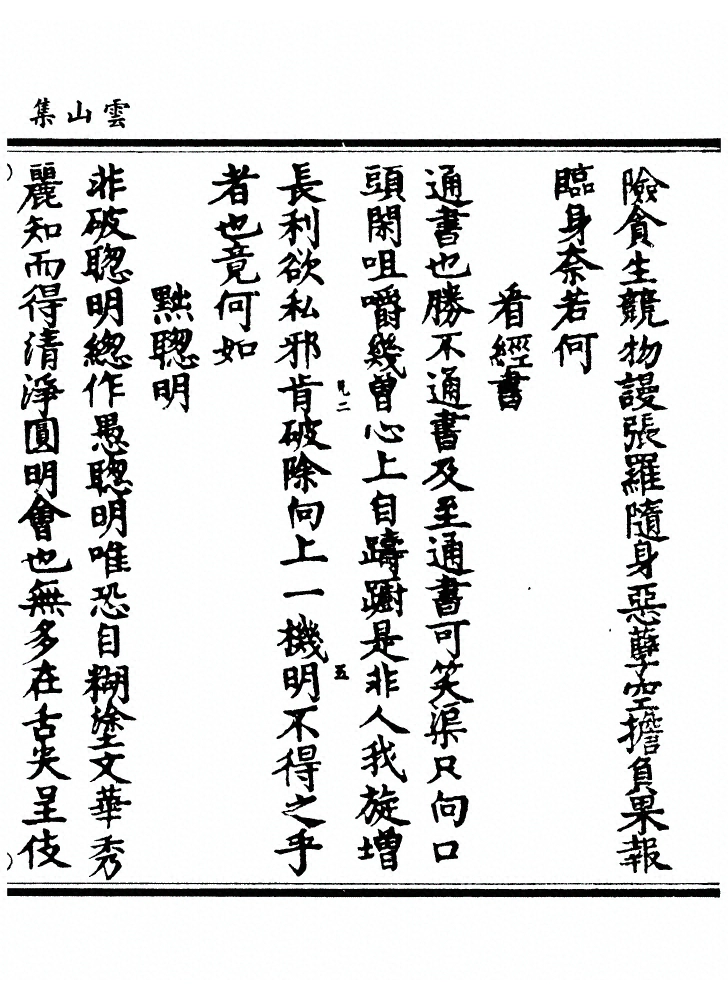 雲山集
險貪生競物謾張羅隨身惡孽空擔負果報
臨身奈若何
看經書
通書也勝不通書及至通書可笑渠只向口
頭閑咀嚼幾曾心上自躊躕是非人我旋增
見二
五
長利欲私邪肯破除向上一機明不得之乎
者也竟何如
黜聰明
非破聰明總作愚聰明唯恐自糊塗文華秀
麗知而得清淨圓明會也無多在舌尖呈伎